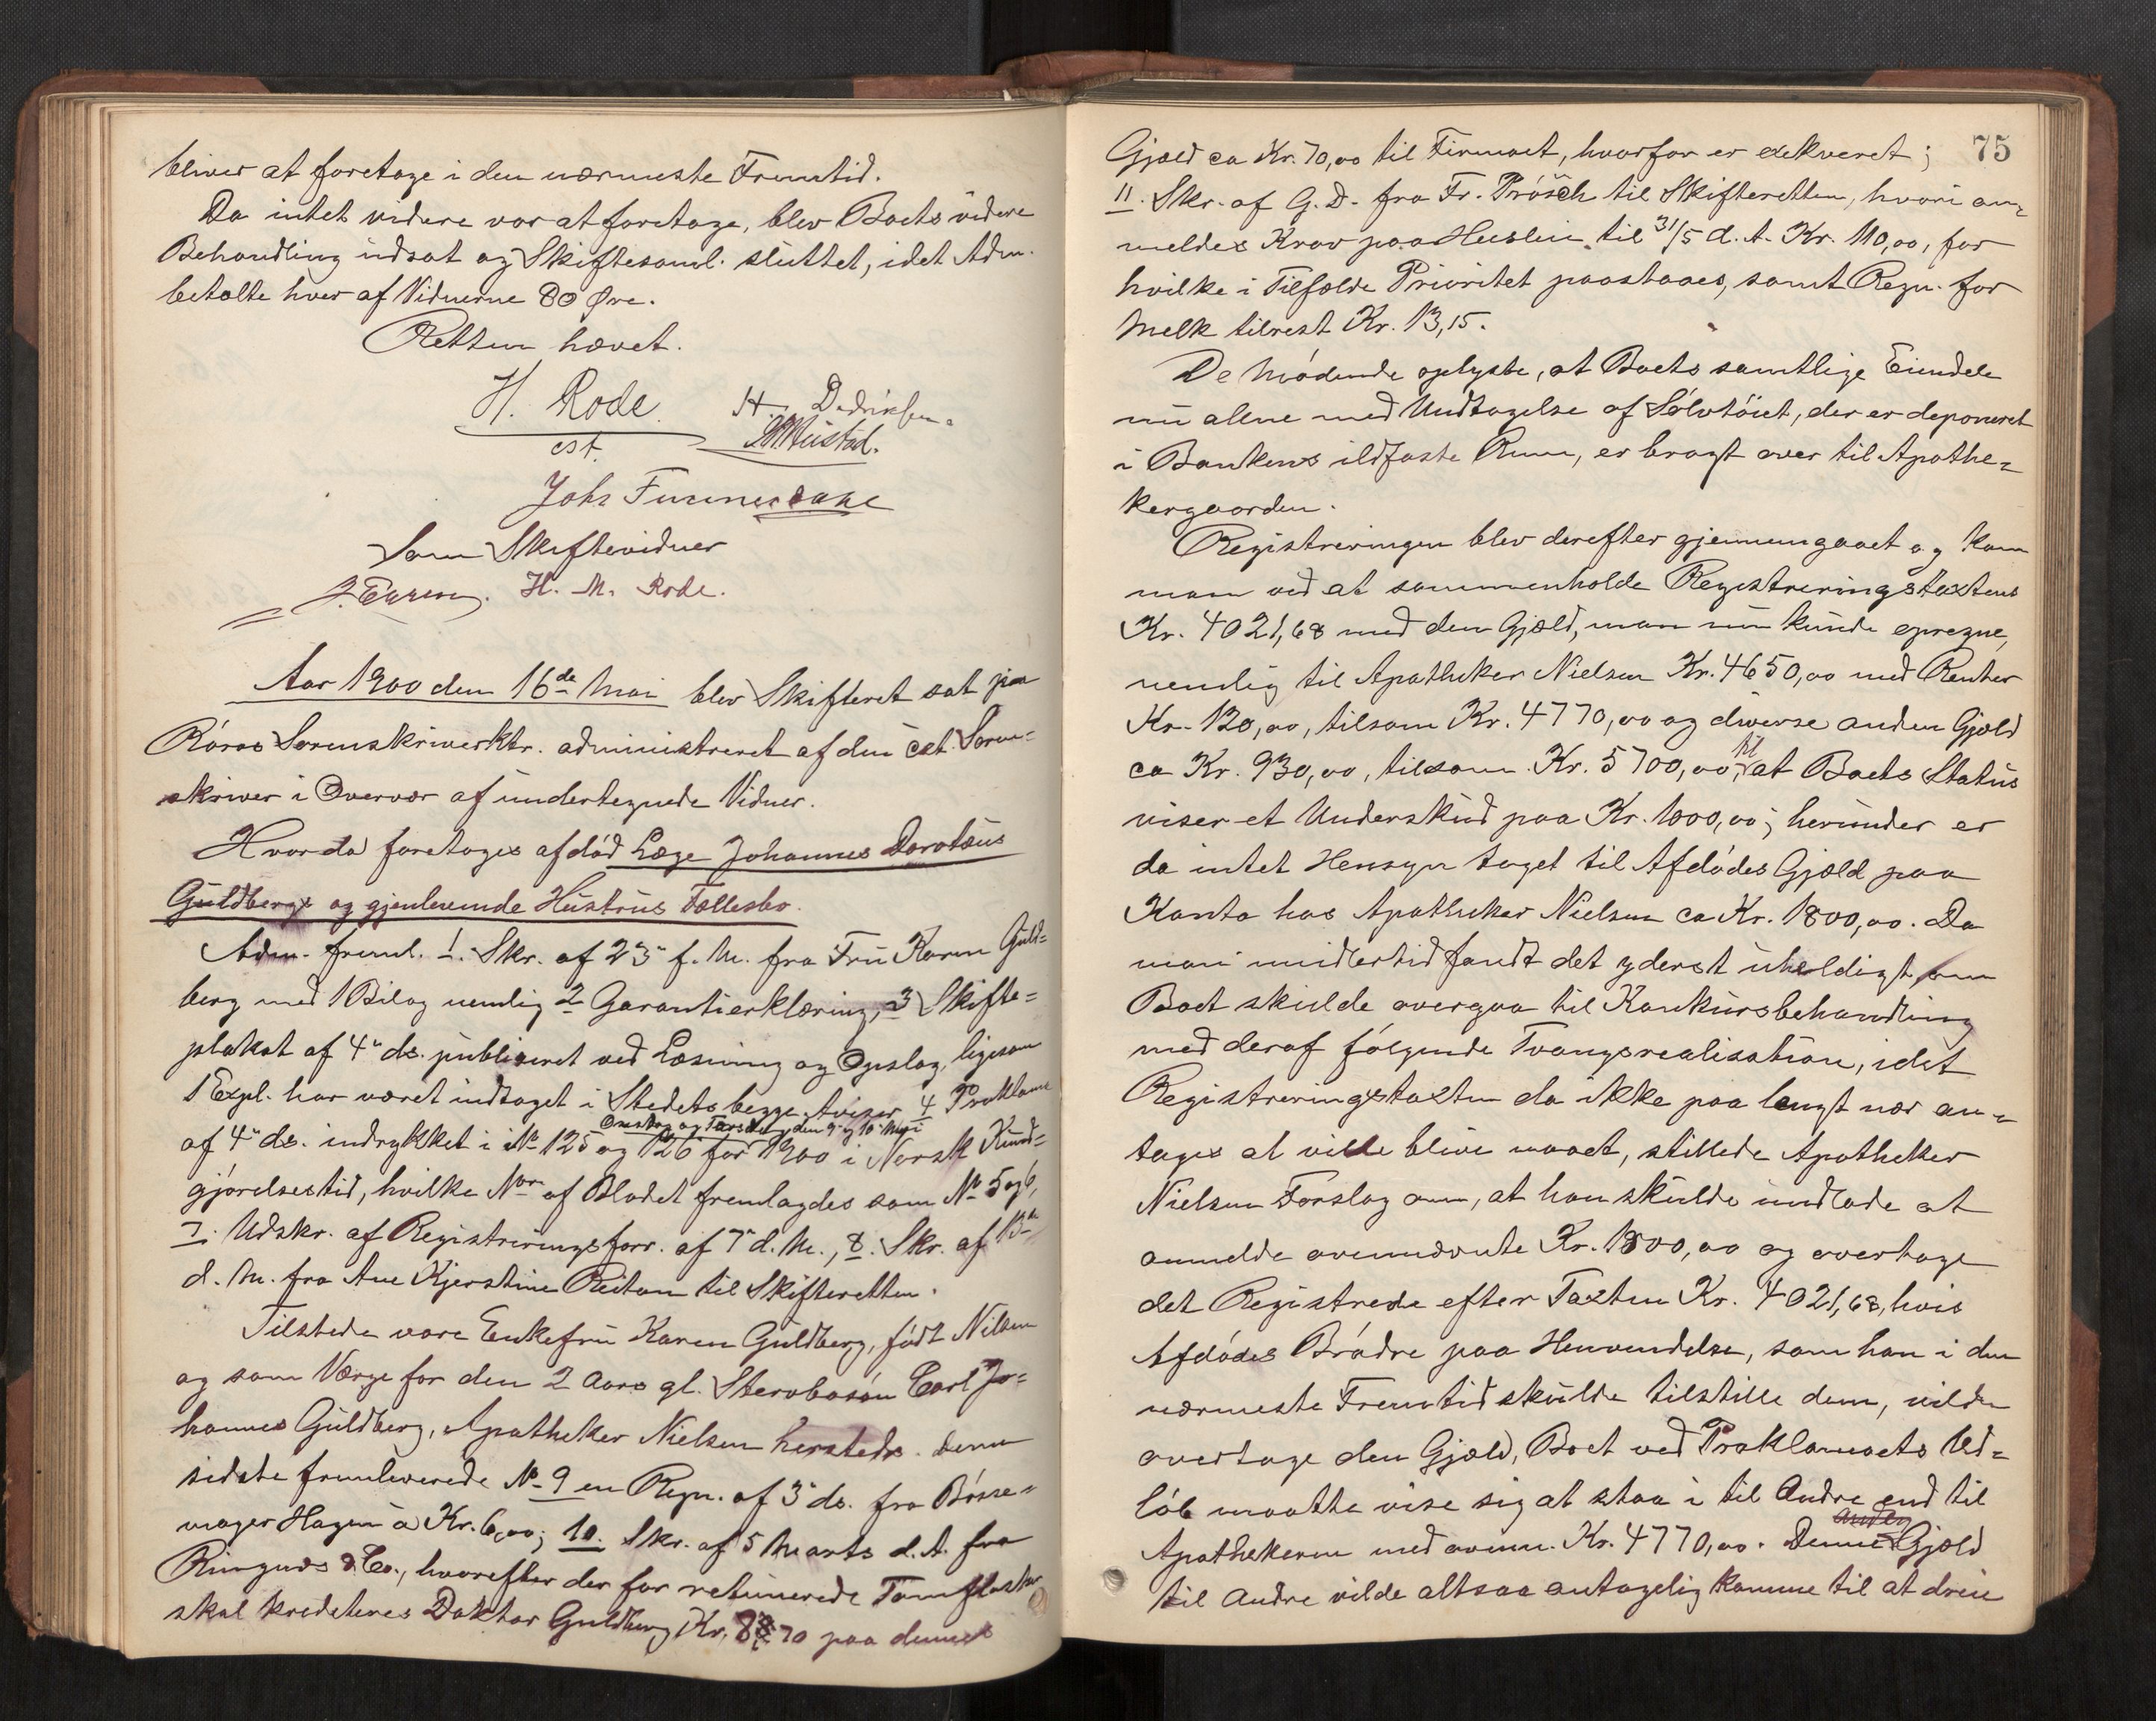 bliver at foretage i den nærmeste Fremtid.
Da intet videre var at foretage, blev Boets videre
Behandling udsat og Skiftesaml. sluttet, idet Adm.
betalte hver af Vidnerne 80 Øre.
Retten hævet.
H. Rode H. Dedriksen.
cst.
Johs
Som Skiftevidner
H. M. Rode.
Aar 1900 den 16de Mai blev Skifteret sat paa
Røros Sorenskriverktr. administreret af den cst. Soren=
skriver i Overvær af undertegnede Vidner.
Hvorda foretages afdød Læge Johannes Dorotæus
Guldbergs og gjenlevende Hustrus Fællesbo.
Adm. freml. 1. Skr. af 23" f. M. fra Fru Karen Guld=
berg med 1 Bilag nemlig 2 Garantierklæring, 3 Skifte=
plakat af 4" ds. publiceret ved Læsning og Opslag, ligesom
1 Expl. har været indtaget i Stedets begge Aviser, 4 Proklama
Onsdag og Torsdag den 9" og 10" Mai
af 4" ds. indrykket i No 125 og 126 for 1900 i Norsk Kund=
gjørelsestid, hvilke Nor af Bladet fremlagdes som No 5 og 6,
7. Udskr. af Registreringsforr. af 7" d. M., 8. Skr. af 13de
d. M. fra Ane Kjerstine Reitan til Skifteretten.
Tilstede vare Enkefru Karen Guldberg, født Nilsen
og som Værge for den 2 Aars gl. Stervbosøn Carl Jo=
hannes Guldberg, Apotheker Nielsen hersteds. Denne
sidste fremleverede No 9 en Regn. af 3" ds. fra Bøsse=
mager Hagen a Kr. 6,00; 10. Skr. af 5 Marts d. A. fra
Ringnes & Co., hvorefter der for returnerede Tomflasker
skal krediteres Doktor Guldberg Kr. 70 paa dennes
75
Gjæld ca Kr. 70,00 til Firmaet, hvorfor er dekveret;
11. Skr. af G. D. fra Fr. Prøsch til Skifteretten, hvori an=
meldes Krav paa Husleie til 31/5 d. A. Kr. 110,00, for
hvilke i Tilfælde Prioritet paastaaes, samt Regn. for
Melk tilrest Kr. 13,15.
De Mødende oplyste, at Boets samtlige Eiendele
nu alene med Undtagelse af Sølvtøiet, der er deponeret
i Bankens ildfaste Rum, er bragt over til Apothe=
kergaarden.
Registreringen blev derefter gjennemgaaet og kom
man ved at sammenholde Registreringstaxtens
Kr. 4021,68 med den Gjæld, man nu kunde opregne,
nemlig til Apotheker Nielsen Kr. 4650,00 med Renter
Kr. 120,00, tilsam Kr. 4770,00 og diverse anden Gjæld
ca Kr. 930,00, tilsam. Kr. 5700,00, til at Boets Status
viser et Underskud paa Kr. 1000,00; herunder er
da intet Hensyn taget til Afdødes Gjæld paa
Konto hos Apotheker Nielsen ca Kr. 1800,00. Da
man imidlertid fandt det yderst uheldigt, om
Boet skulde overgaa til Konkursbehandling
med deraf følgende Tvangsrealisation, idet
Registreringstaxten da ikke paa langt nær an=
tages at ville blive naaet, stillede Apotheker
Nielsen Forslag om, at han skulde undlade at
anmelde ovennævnte Kr. 1800,00 og overtage
det Registrerede efter Taxten Kr. 4021,68, hvis
Afdødes Brødre paa Henvendelse, som han i den
nærmeste Fremtid skulde tilstille dem, vilde
overtage den Gjæld, Boet ved Proklamaets Ud=
løb maatte vise sig at staa i til Andre end til
Apothekeren med ovenn. Kr. 4770,00. Denne Gjæld
til Andre vilde altsaa antagelig komme til at dreie